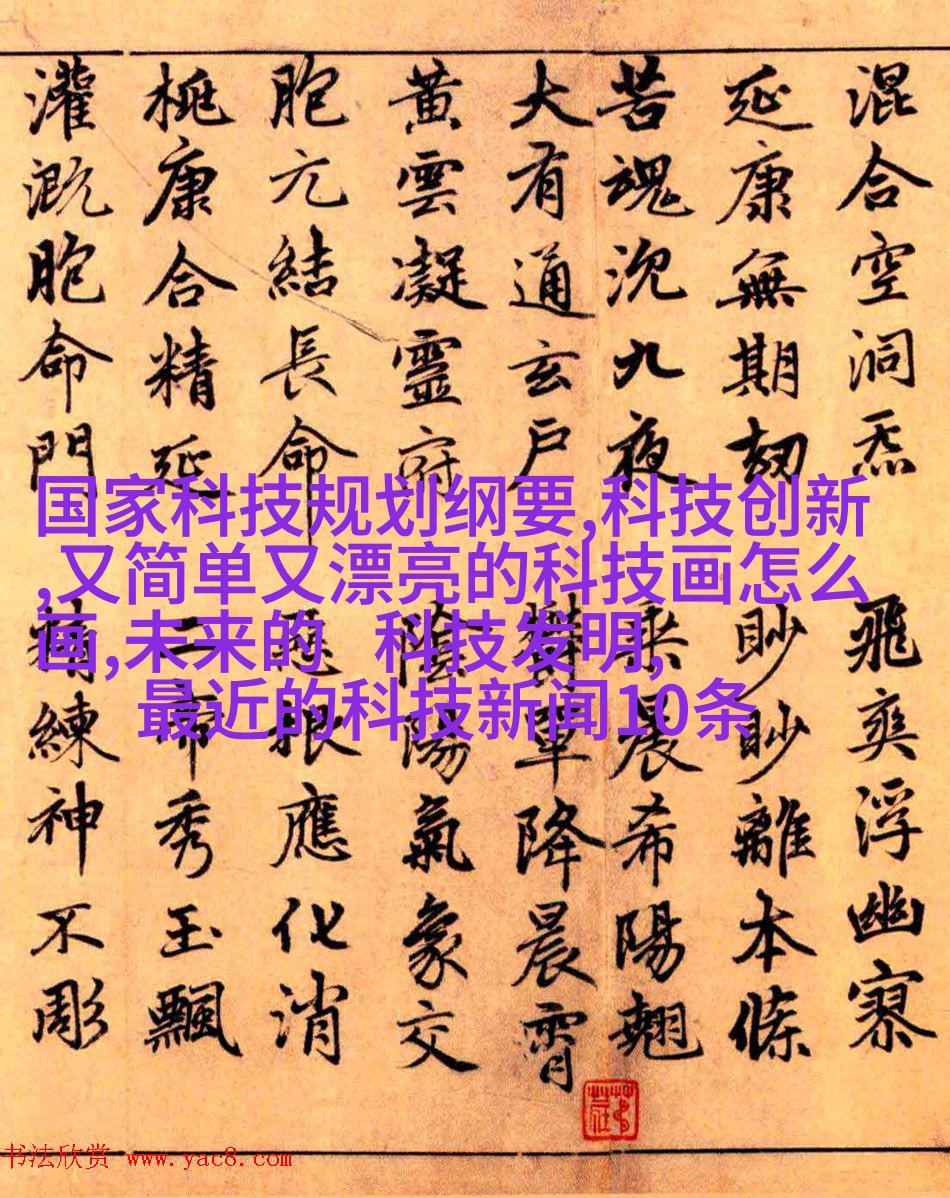 混合空洞炁 飛爽浮幽寥
延康無期劫 眇眇離本條
苦魂沉九夜 乘晨希陽翹
大有通玄戶 單降晨霄
黃雲凝靈府 陰陽氣象交
胞元結長命 根應化消
桃康合精延 二帝秀玉飄
灌溉胞命門 練神不彫
国家科技规划纲要,科技创新
,又简单又漂亮的科技画怎么
画,未来的 科技发明,
最近的科技新闻10条
书法欣赏 www.yac8.com